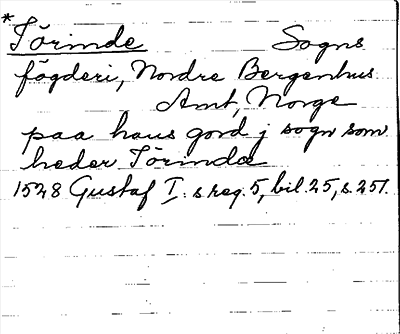 * Törinde Sogns
fögderi, Nordre Bergenhus
Amt, Norge
paa hans gord j sogn som
heder Törinda
1528 Gustaf I:s reg. 5, bil. 25, s. 251.